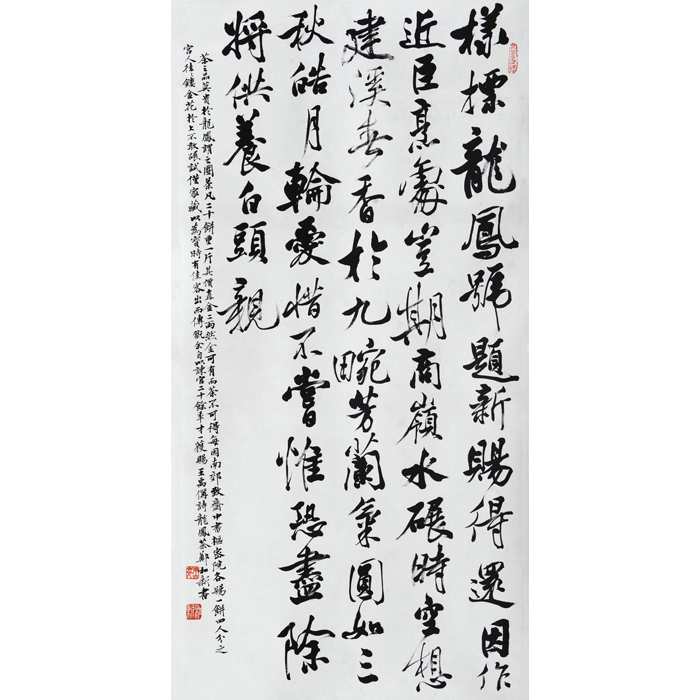 樣標龍鳳號題新賜得還因作
近臣烹處豈期商嶺水碾時空想
建溪春香於九畹芳蘭氣圓如三
秋皓月輪愛惜不嘗惟恐盡除
將供養白頭親
茶之品莫貴於龍鳳謂之團茶凡二十餅重一斤其價直金二兩然金可有而茶不可得每因南郊致齋中書樞密院各賜一餅四人分之
宮人往往鏤金花於上不敢碾試僅家藏以為寶時有佳客出而傳翫余自以諫官二十餘年才一獲賜 王禹偁詩龍鳳茶 鄭和新書